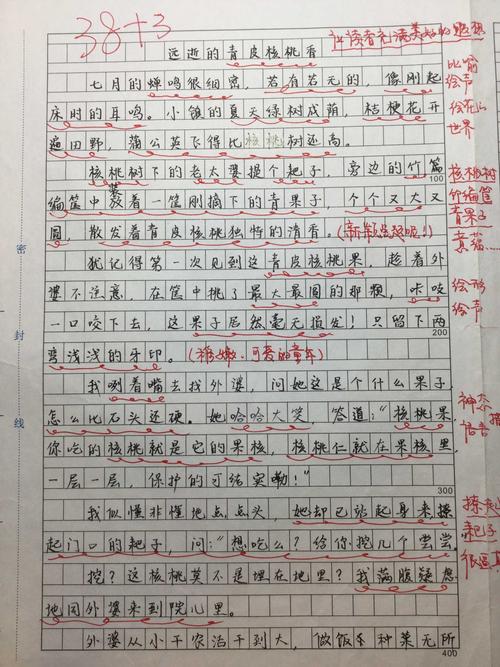 38+3
远逝的青皮核桃香
让读者充满美好的遐想
七月的蝉鸣很细密，若有若无的，像刚起
比喻
床时的耳鸣。小镇的夏天绿树成荫，桔梗花开
绘声
遍田野，蒲公英飞得比核桃树还高。
世界
核桃树下的老太婆摸个耙子，旁边的竹篇
核桃树
100
编筐中盛着一筐刚摘下的青果子，个个又大又
竹编筐
圆，散发着青皮核桃独特的清香。
青果子
犹记得第一次见到这青皮核桃果，趁着外
婆不注意，在筐中挑了最大最圆的那颗，咔吱
绘形
绘声
一口咬下去，这果子居然毫无损发！只留下两
200
弯浅浅的牙印。
稚嫩、可爱的童年
我咧着嘴去找外婆，问她这是个什么果子，
怎么比石头还硬。她哈哈大笑 答道：“核桃果，
神态
语言
你吃的核桃就是它的果核，核桃仁就在果核里，
一层一层，保护的可结实嘞！”
300
我似懂非懂地点点头，她却已站起身来操
起门口的耙子，问：“想吃么？给你挖几个尝尝。
耙子
挖？这核桃莫不是埋在地里？我满腹疑惑
地同外婆来到院儿里。
外婆从小干农活干到大，做饭种菜无所
400
密
封
线